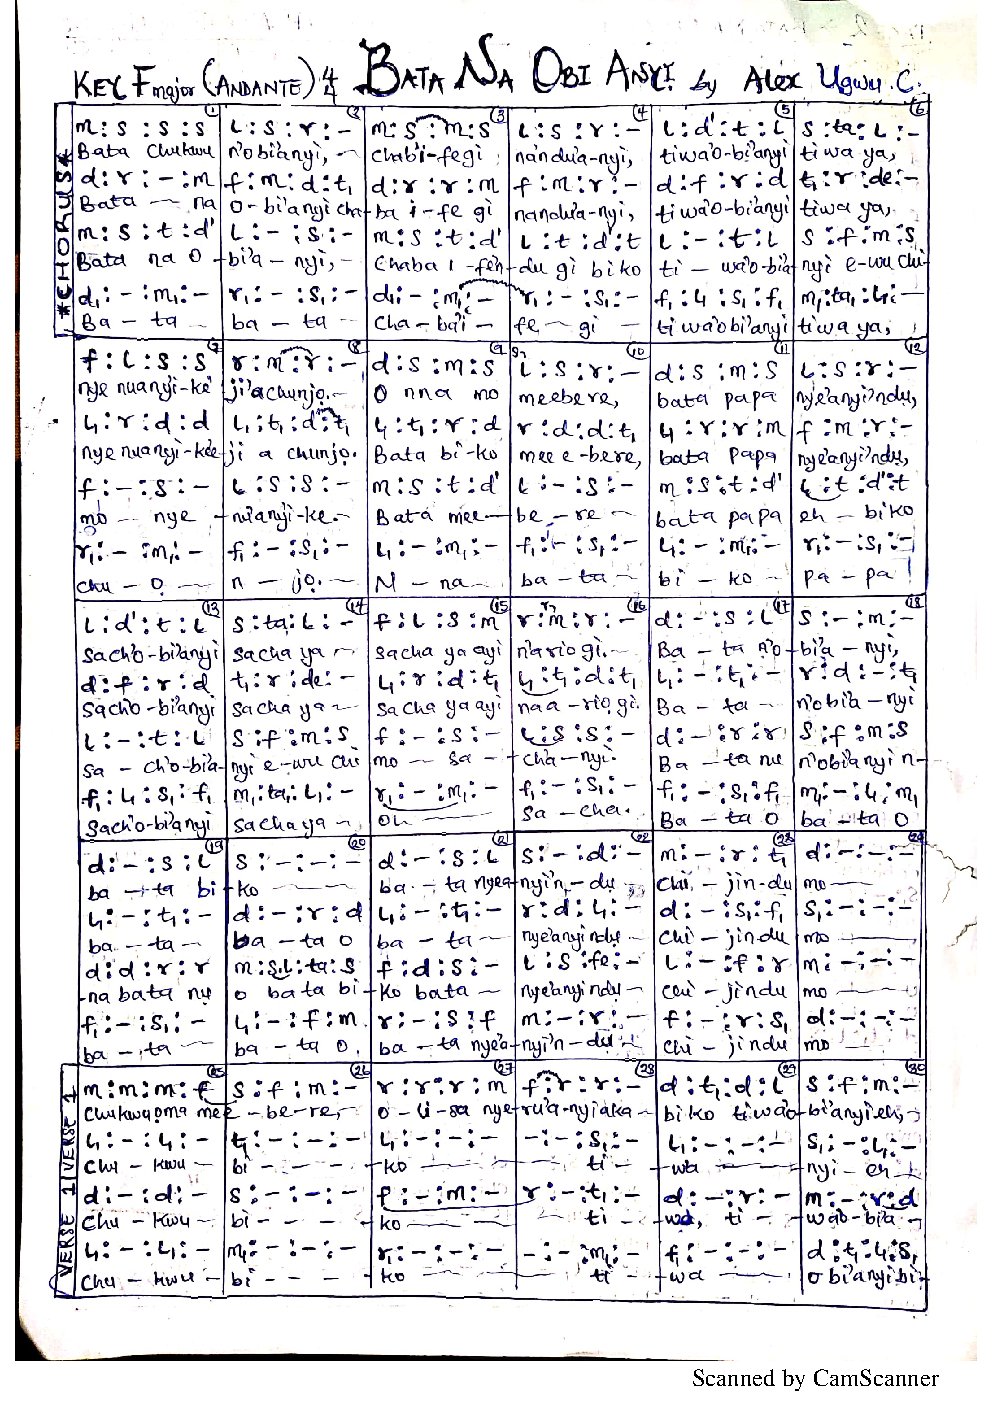 KEY F major (ANDANTE) 4/4 BATA NA OBI ANYI by Alex Ugwu .C.
*CHORUS*
1 2 3 4 5 6
m : s : s : s | l : s : r : - | m : s : m : s | l : s : r : - | l : d' : t : l | s : ta : l : -
Bata Chukwu | n'obi'anyi, - | chab'i-fegi | nandu'a-nyi, | tiwa'o-bi'anyi | tiwa ya,
d : r : - : m | f : m : d : t₁ | d : r : r : m | f : m : r : - | d : f : r : d | t₁ : r : de : -
Bata - na | o-bi'anyi cha- | ba i-fe gi | nandu'a-nyi, | tiwa'o-bi'anyi | tiwa ya,
m : s : t : d' | l : - : s : - | m : s : t : d' | l : t : d' : t | l : - : t : l | s : f : m : s
Bata na O | bi'a - nyi, - | Chaba i-fen- | du gi biko | ti - wa'o-bi'a- | nyi e-wu chi-
d₁ : - : m₁ : - | r₁ : - : s₁ : - | d₁ : - : m₁ : - | r₁ : - : s₁ : - | f₁ : l₁ : s₁ : f₁ | m₁ : ta₁ : l₁ : -
Ba - ta - | ba - ta - | Cha-ba'i - | fe - gi - | tiwa'obi'anyi | tiwa ya,
7 8 9 10 11 12
f : l : s : s | r : m : r : - | d : s : m : s | l : s : r : - | d : s : m : s | l : s : r : -
nye nuanyi-ke | ji'a chunjo. - | O nna mo | meebere, | bata papa | nye'anyi'ndu,
l₁ : r : d : d | l₁ : t₁ : d : t₁ | l₁ : t₁ : r : d | r : d : d : t₁ | l₁ : r : r : m | f : m : r : -
nye nuanyi-kee | ji a chunjo. | Bata bi-ko | mee e-bere, | bata papa | nye'anyi'ndu,
f : - : s : - | l : s : s : - | m : s : t : d' | l : - : s : - | m : s : t : d' | l : t : d' : t
mo - nye | nu'anyi-ke. - | Bata mee - | be - re - | bata papa | eh - biko
r₁ : - : m₁ : - | f₁ : - : s₁ : - | l₁ : - : m₁ : - | f₁ : - : s₁ : - | l₁ : - : m₁ : - | r₁ : - : s₁ : -
chu - o - | n - jo. - | N - na - | ba - ta - | bi - ko - | pa - pa
13 14 15 16 17 18
l : d' : t : l | s : ta : l : - | f : l : s : m | r : m : r : - | d : - : s : l | s : - : m : -
sach'o-bi'anyi | sacha ya - | sacha ya ayi | n'ario gi. - | Ba - ta n'o- | bi'a - nyi,
d : f : r : d | t₁ : r : de : - | l₁ : r : d : t₁ | l₁ : t₁ : d : t₁ | l₁ : - : t₁ : - | r : d : - : t₁
sach'o-bi'anyi | sacha ya - | sacha ya ayi | naa - rio gi. | Ba - ta - | n'obi'a - nyi
l : - : t : l | s : f : m : s | f : - : s : - | l : s : s : - | d : - : r : r | s : f : m : s
sa - ch'o-bi'a- | nyi e-wu chi | mo - sa - | cha - nyi. | Ba - ta nu | n'obi'anyi n-
f₁ : l₁ : s₁ : f₁ | m₁ : ta₁ : l₁ : - | r₁ : - : m₁ : - | f₁ : - : s₁ : - | f₁ : - : s₁ : f₁ | m₁ : - : l₁ : m₁
sach'o-bi'anyi | sacha ya - | oh | sa - cha. | Ba - ta o | ba - ta o
19 20 21 22 23 24
d : - : s : l | s : - : - : - | d : - : s : l | s : - : d : - | m : - : r : t₁ | d : - : - : -
ba - ta bi | ko | ba - ta nyea- | nyi'n - du | chi - jin-du | mo
l₁ : - : t₁ : - | d : - : r : d | l₁ : - : t₁ : - | r : d : l₁ : - | d : - : s₁ : f₁ | s₁ : - : - : -
ba - ta - | ba - ta o | ba - ta - | nye'anyi ndu - | chi - jindu | mo
d : d : r : r | m : s.l : ta : s | f : d : s : - | l : s : fe : - | l : - : f : r | m : - : - : -
-na bata nu | o bata bi | ko bata - | nye'anyi ndu - | chi - jindu | mo
f₁ : - : s₁ : - | l₁ : - : f : m | r : - : s : f | m : - : r : - | f : - : r : s₁ | d : - : - : -
ba - ta - | ba - ta o. | ba - ta nye'a- | nyi'n - du | chi - jindu | mo
VERSE 1 | VERSE 1
25 26 27 28 29 30
m : m : m : f | s : f : m : - | r : r : r : m | f : r : r : - | d : t₁ : d : l | s : f : m : -
Chukwuoma mee | - be-re, - | o-li-sa nye- | ru'a-nyi aka - | biko tiwa'o- | bi'anyi eh, -
l₁ : - : l₁ : - | t₁ : - : - : - | l₁ : - : - : - | - : - : s₁ : - | l₁ : - : - : - | s₁ : - : l₁ : -
Chu - kwu - | bi - - - | ko | ti - | wa | nyi - eh
d : - : d : - | s : - : - : - | f : - : m : - | r : - : t₁ : - | d : - : r : - | m : - : r : d
chu - kwu - | bi - - - | ko | ti - | wa, ti - | wa'o-bi'a -
l₁ : - : l₁ : - | m₁ : - : - : - | r₁ : - : - : - | - : - : m₁ : - | f₁ : - : - : - | d : t₁ : l₁ : s₁
chu - kwu - | bi - - - | ko | ti - | wa | o bi'anyi bi-
Scanned by CamScanner